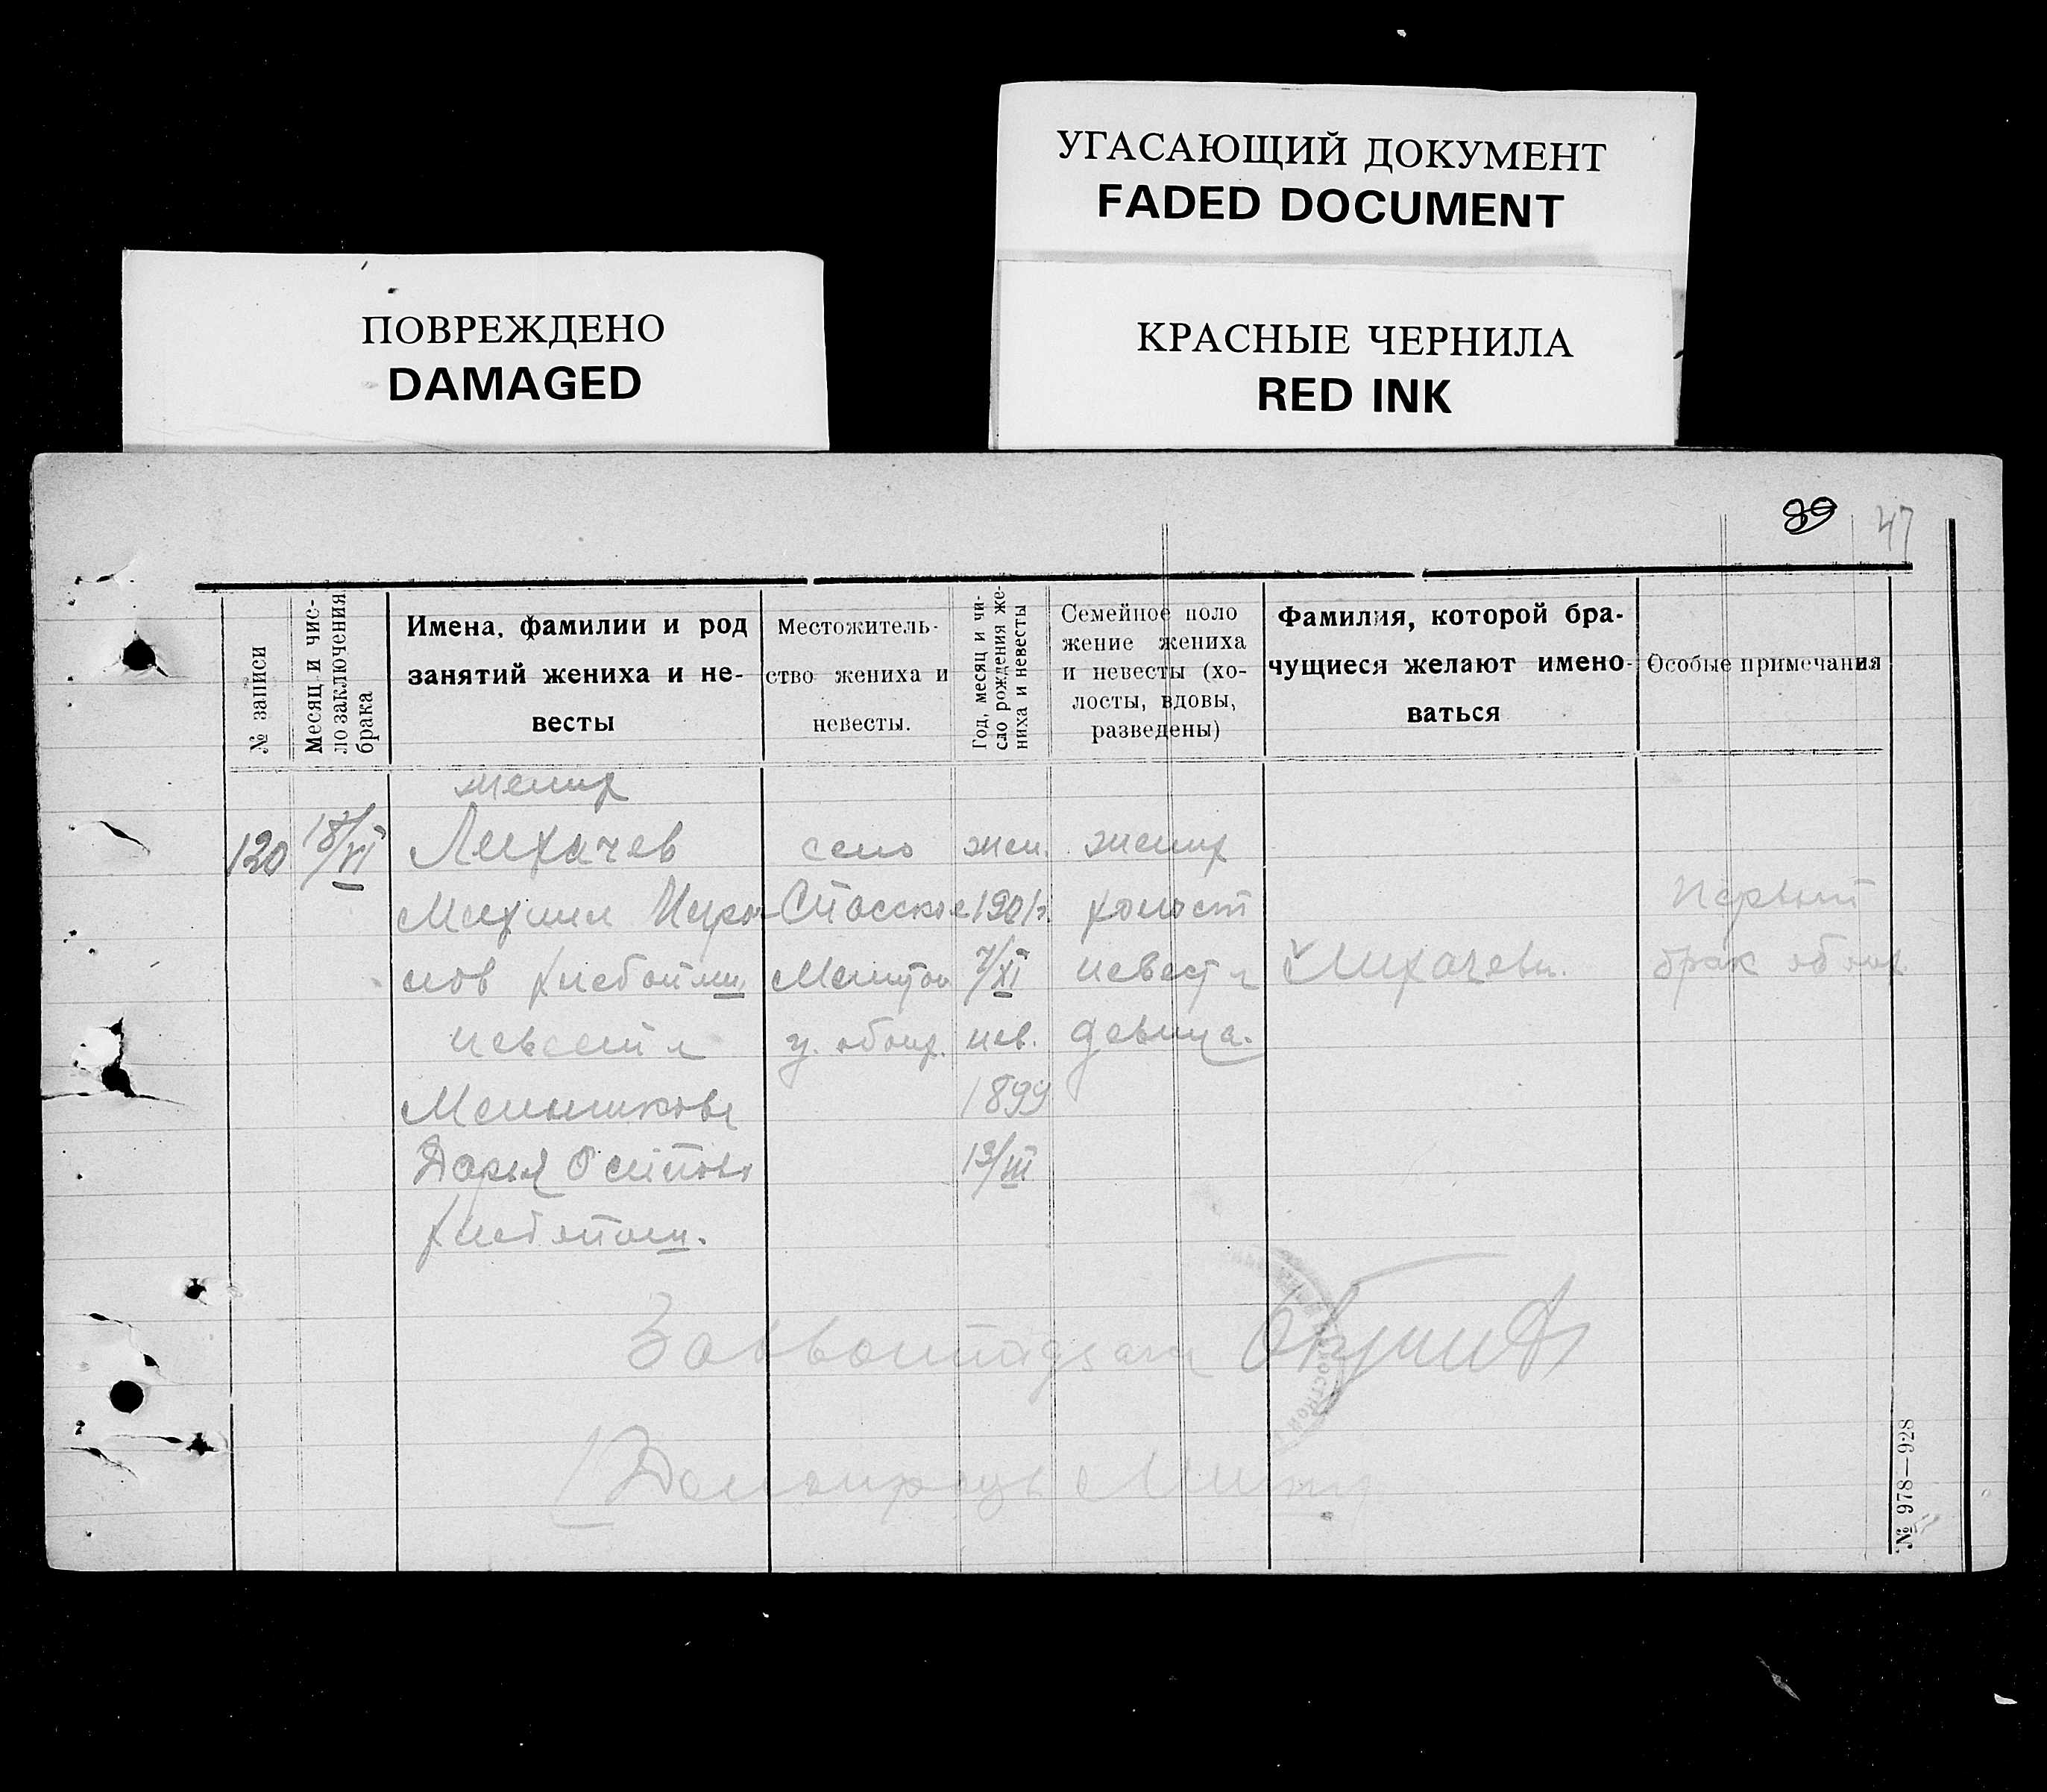 УГАСАЮЩИЙ ДОКУМЕНТ
FADED DOCUMENT
ПОВРЕЖДЕНО
DAMAGED
КРАСНЫЕ ЧЕРНИЛА
RED INK
39 47
№ записи
Месяц и чис-
ло заключения
брака
Имена, фамилии и род
занятий жениха и не-
весты
Местожитель-
ство жениха и
невесты.
Год, месяц и чи-
сло рождения же-
ниха и невесты
Семейное поло
жение жениха
и невесты (хо-
лосты, вдовы,
разведены)
Фамилия, которой бра-
чущиеся желают имено-
ваться
Особые примечания
120
18/VI
жених
Лихачев
Михаил
нов хлебопаш.
невеста
Меньшикова
Дарья Осипова
хлебопаш.
село
Спасское
у. обоих.
жен.
1901г.
7/XI
нев.
1899
13/III
жених
холост
невеста
девица.
Лихачевы.
Первый
брак обоих.
№ 978—928